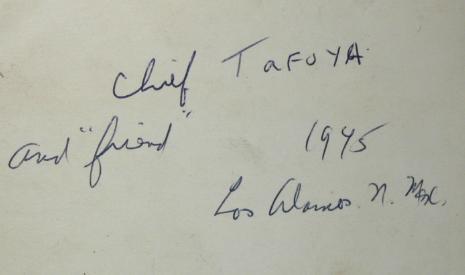 Chief TAFOYA
and "friend" 1945
Los Alamos N. Mex.